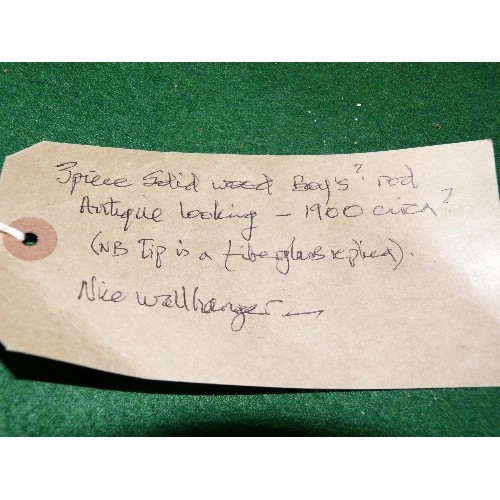 3piece Solid wood Boy's? rod
Antique looking – 1900 circa?
(NB Tip is a fiberglass replica).
Nice wallhanger —